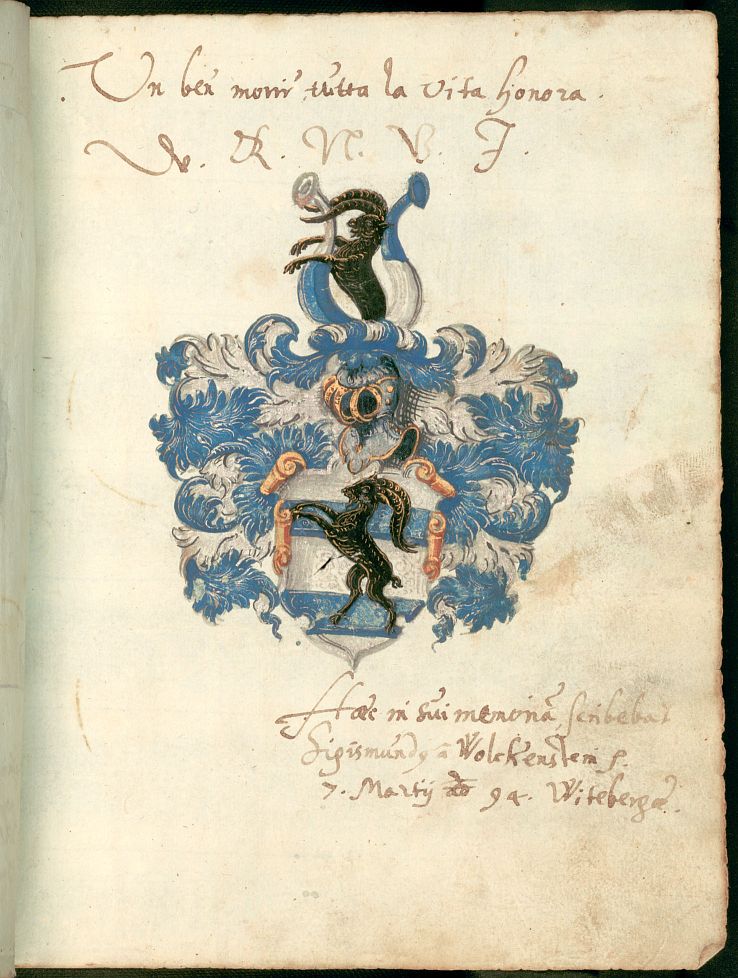 Un ben morir tutta la vita honora.
W. R. N. V. J.
Haec in sui memoriā scribebat
Sigismundꝰ ā Wolckenstein f.
7. Martij aō 94. Witebergæ.